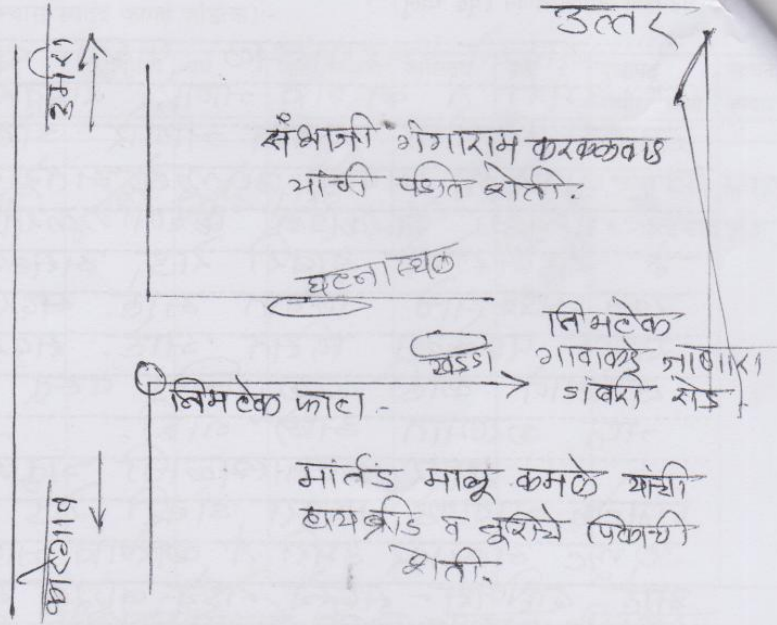 उत्तर
उमरा
संभाजी गंगाराम करककवाड
यांची पडीत शेती.
घटनास्थळ
खड्डा
निमटेक
गावाकडे जाणारा
डांबरी रोड
निमटेक फाटा
मार्तंड मालू कमळे यांची
हायब्रीड व तुरीचे पिकाची
शेती.
कारेगाव